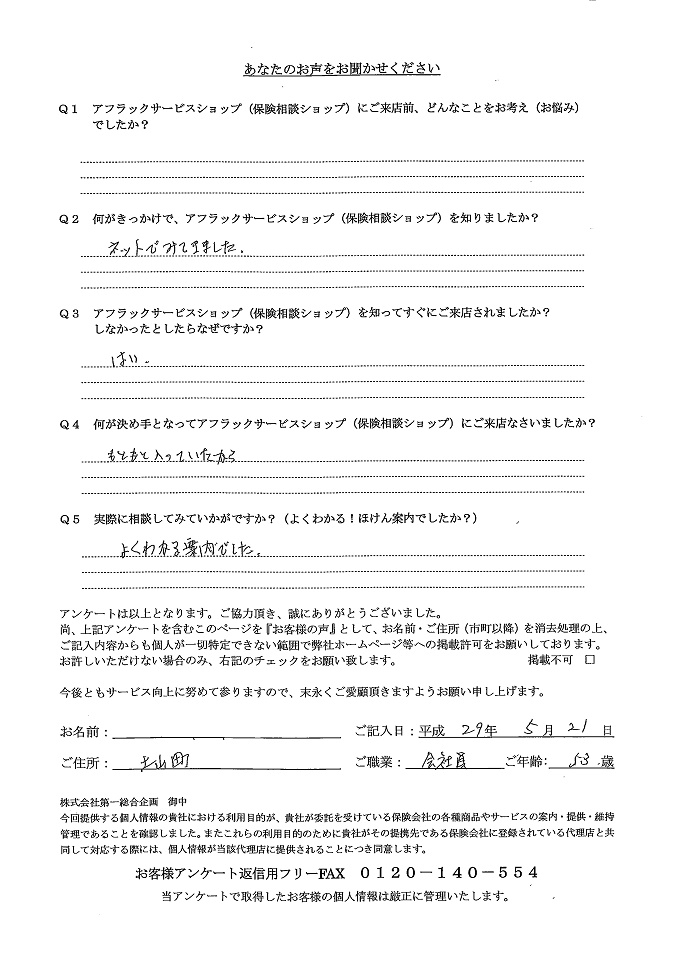 あなたのお声をお聞かせください
Q1 アフラックサービスショップ（保険相談ショップ）にご来店前、どんなことをお考え（お悩み）
でしたか？
Q2 何がきっかけで、アフラックサービスショップ（保険相談ショップ）を知りましたか？
ネットでみてきました。
Q3 アフラックサービスショップ（保険相談ショップ）を知ってすぐにご来店されましたか？
しなかったとしたらなぜですか？
はい。
Q4 何が決め手となってアフラックサービスショップ（保険相談ショップ）にご来店なさいましたか？
もともと入っていたから
Q5 実際に相談してみていかがですか？（よくわかる！ほけん案内でしたか？）
よくわかる案内でした。
アンケートは以上となります。ご協力頂き、誠にありがとうございました。
尚、上記アンケートを含むこのページを『お客様の声』として、お名前・ご住所（市町以降）を消去処理の上、
ご記入内容からも個人が一切特定できない範囲で弊社ホームページ等への掲載許可をお願いしております。
お許しいただけない場合のみ、右記のチェックをお願い致します。 掲載不可 □
今後ともサービス向上に努めて参りますので、末永くご愛顧頂きますようお願い申し上げます。
お名前： ご記入日：平成 29年 5月21日
ご住所： 山町 ご職業：会社員 ご年齢：53歳
株式会社第一総合企画 御中
今回提供する個人情報の貴社における利用目的が、貴社が委託を受けている保険会社の各種商品やサービスの案内・提供・維持
管理であることを確認しました。またこれらの利用目的のために貴社がその提携先である保険会社に登録されている代理店と共
同して対応する際には、個人情報が当該代理店に提供されることにつき同意します。
お客様アンケート返信用フリーFAX 0120－140－554
当アンケートで取得したお客様の個人情報は厳正に管理いたします。